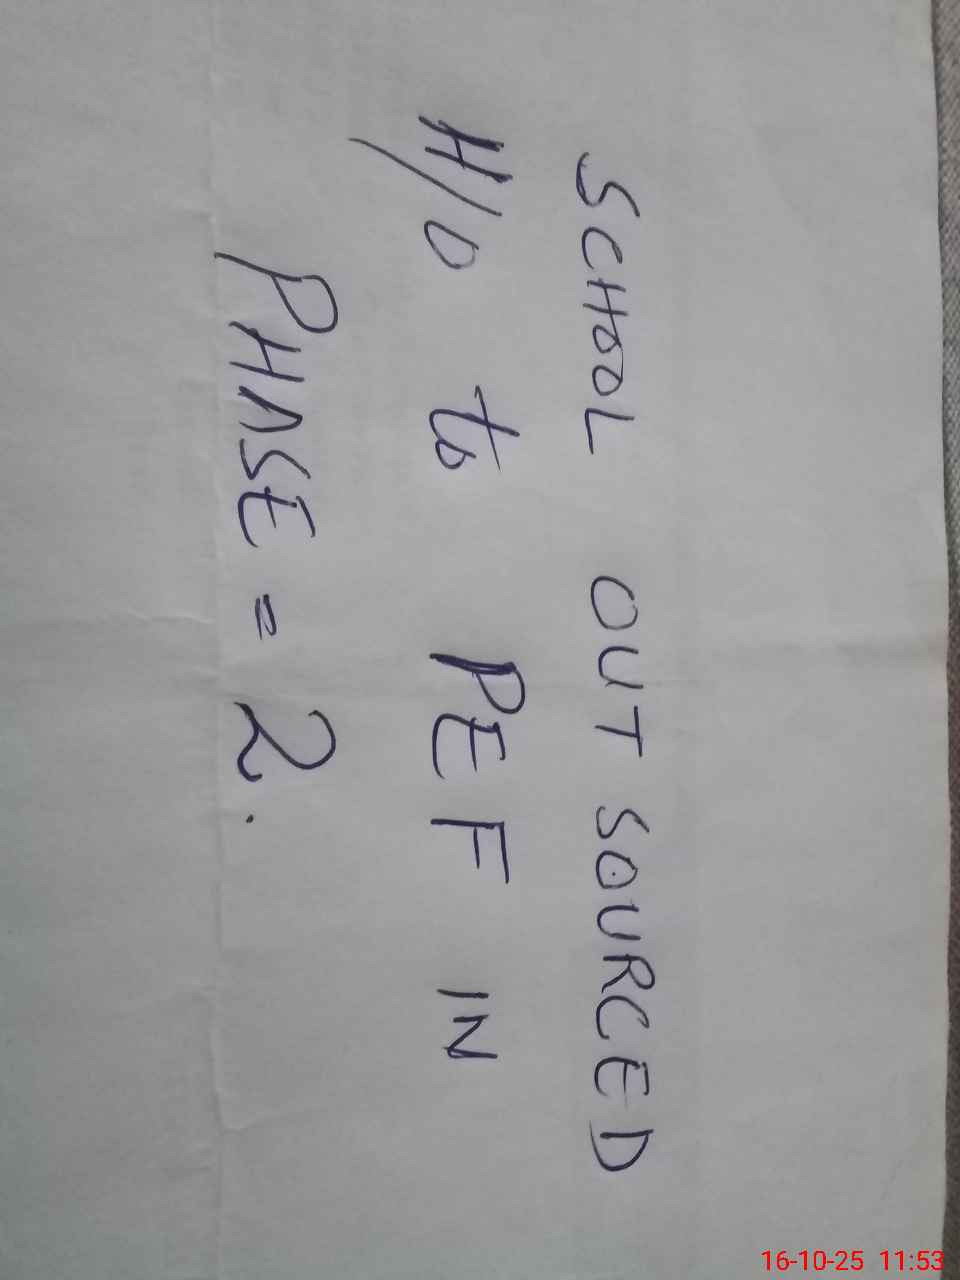 SCHOOL OUT SOURCED
H/O to PEF IN
PHASE = 2.
16-10-25 11:53